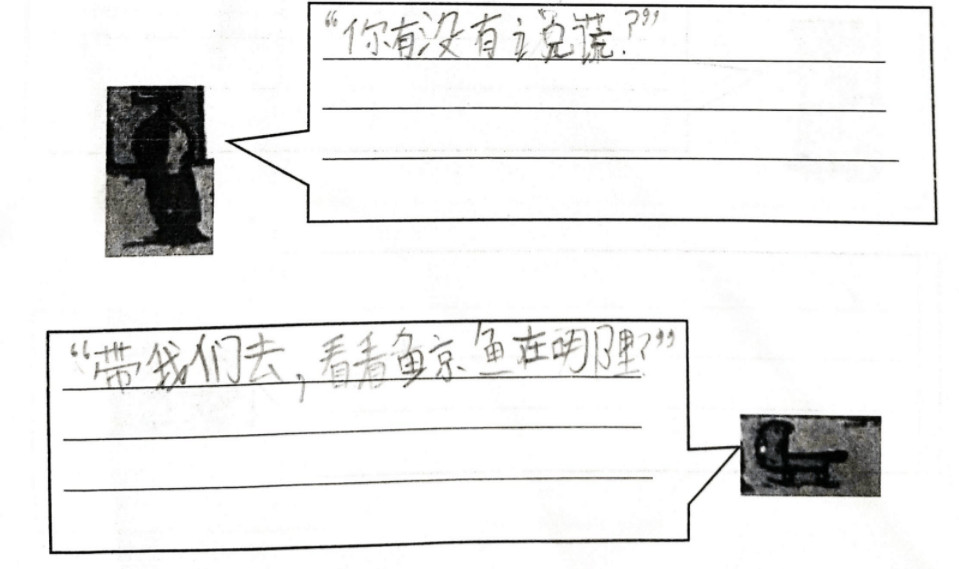 “你有没有说谎?”
“带我们去,看看鲸鱼在哪里?”